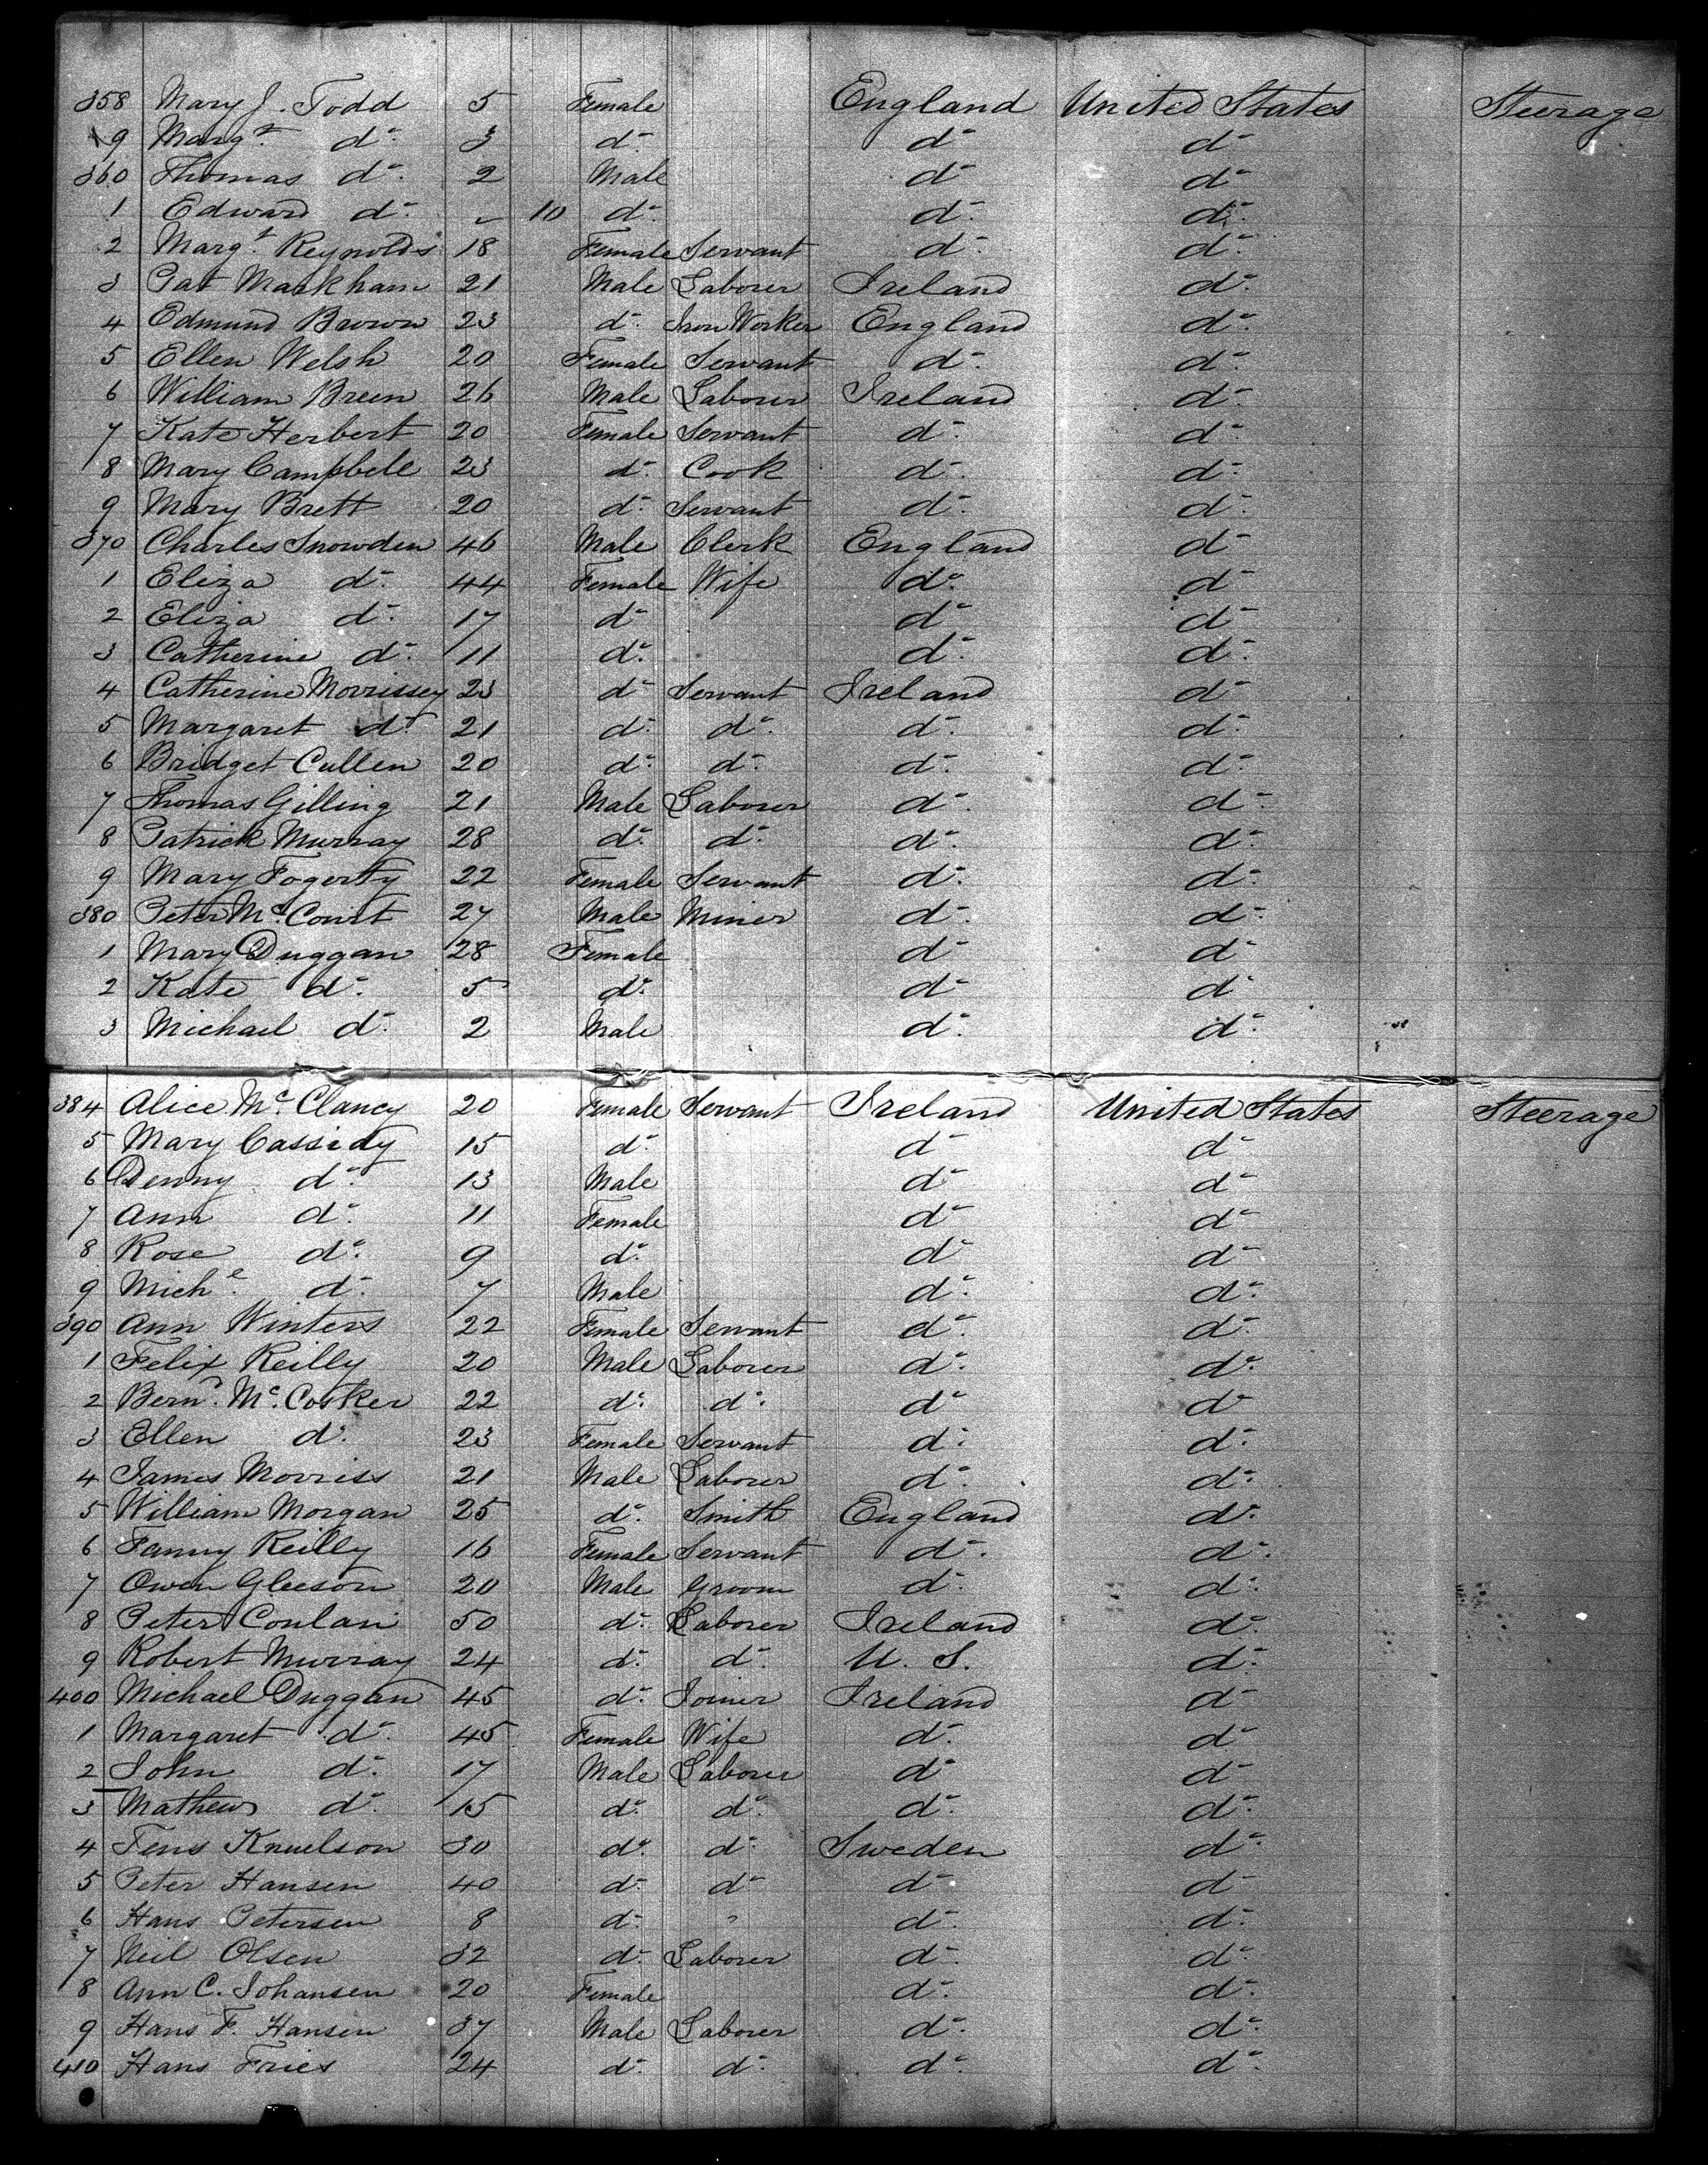 358 Mary J. Todd 5 Female England United States Steerage
9 Margt. do. 3 do. do do
360 Thomas do. 2 Male do do
1 Edward do. - 10 do. do. do.
2 Margt Reynolds 18 Female Servant do. do.
3 Pat Markham 21 Male Laborer Ireland do.
4 Edmund Brown 23 do. Iron Worker England do.
5 Ellen Welsh 20 Female Servant do. do.
6 William Breen 26 Male Laborer Ireland do.
7 Kate Herbert 20 Female Servant do. do.
8 Mary Campbell 23 do. Cook do. do.
9 Mary Brett 20 do. Servant do. do.
370 Charles Snowden 46 Male Clerk England do
1 Eliza do. 44 Female Wife do. do
2 Eliza do. 17 do do do
3 Catherine do. 11 do. do. do.
4 Catherine Morrissey 23 do Servant Ireland do
5 Margaret do 21 do. do. do. do.
6 Bridget Cullen 20 do. do. do. do.
7 Thomas Gilling 21 Male Laborer do. do.
8 Patrick Murray 28 do. do. do. do.
9 Mary Fogerty 22 Female Servant do. do.
380 Peter McCourt 27 Male Miner do. do.
1 Mary Duggan 28 Female do do
2 Kate do. 5 do. do do
3 Michael do. 2 Male do. do.
384 Alice Mc Clancy 20 Female Servant Ireland United States Steerage
5 Mary Cassidy 15 do. do do
6 Denny do. 13 Male do do
7 Ann do. 11 Female do do
8 Rose do. 9 do. do do
9 Michl. do. 7 Male do. do.
390 Ann Winters 22 Female Servant do. do.
1 Felix Reilly 20 Male Laborer do. do.
2 Bernd. Mc. Cosker 22 do. do. do do
3 Ellen do. 23 Female Servant do. do.
4 James Morriss 21 Male Laborer do. do.
5 William Morgan 25 do. Smith England do.
6 Fanny Reilly 16 Female Servant do. do.
7 Owen Gleeson 20 Male Groom do. do.
8 Peter Conlan 50 do. Laborer Ireland do.
9 Robert Murray 24 do. do. U. S. do.
400 Michael Duggan 45 do. Joiner Ireland do
1 Margaret do. 45 Female Wife do. do.
2 John do. 17 Male Laborer do do
3 Mathew do. 15 do. do. do. do.
4 Jens Knuelson 30 do. do. Sweden do.
5 Peter Hansen 40 do. do do do
6 Hans Petersen 8 do. " do. do.
7 Neil Olsen 32 do. Laborer do. do.
8 Ann C. Johansen 20 Female do. do.
9 Hans F. Hansen 37 Male Laborer do. do.
410 Hans Fries 24 do. do. do. do.